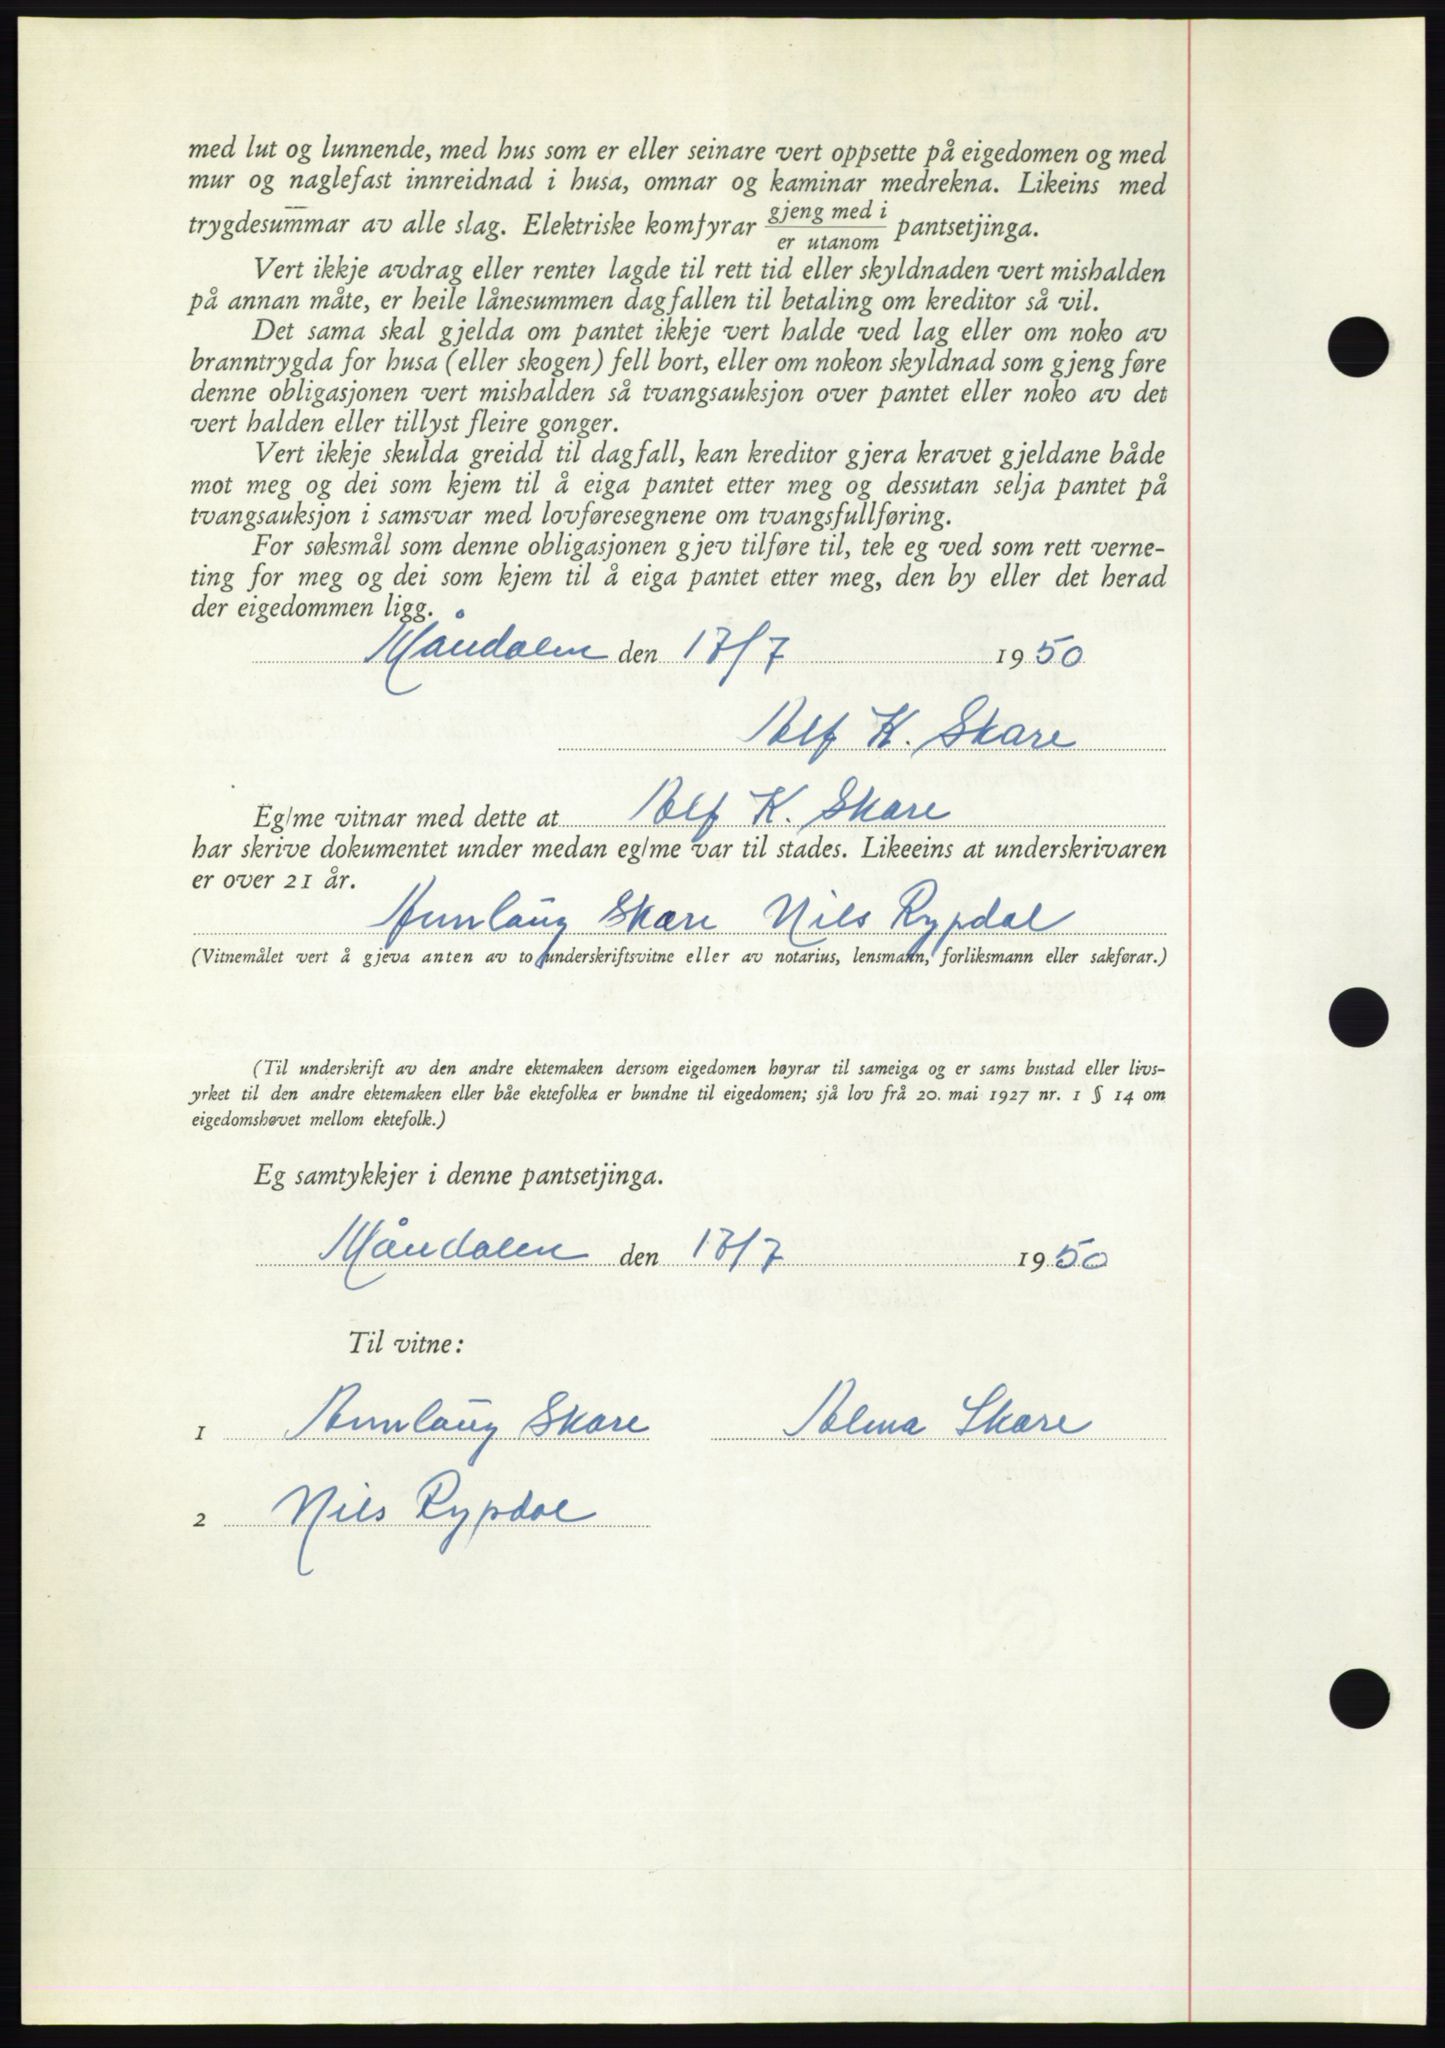 med lut og lunnende, med hus som er eller seinare vert oppsette på eigedomen og med
mur og naglefast innreidnad i husa, omnar og kaminar medrekna. Likeins med
trygdesummar av alle slag. Elektriske komfyrar gjeng med i / er utanom pantsetjinga.
Vert ikkje avdrag eller renter lagde til rett tid eller skyldnaden vert mishalden
på annan måte, er heile lånesummen dagfallen til betaling om kreditor så vil.
Det sama skal gjelda om pantet ikkje vert halde ved lag eller om noko av
branntrygda for husa (eller skogen) fell bort, eller om nokon skyldnad som gjeng føre
denne obligasjonen vert mishalden så tvangsauksjon over pantet eller noko av det
vert halden eller tillyst fleire gonger.
Vert ikkje skulda greidd til dagfall, kan kreditor gjera kravet gjeldane både
mot meg og dei som kjem til å eiga pantet etter meg og dessutan selja pantet på
tvangsauksjon i samsvar med lovføresegnene om tvangsfullføring.
For søksmål som denne obligasjonen gjev tilføre til, tek eg ved som rett verne-
ting for meg og dei som kjem til å eiga pantet etter meg, den by eller det herad
der eigedommen ligg.
Måndalen den 17/7 1950
Alf K. Skare
Eg/me vitnar med dette at Alf K. Skare
har skrive dokumentet under medan eg/me var til stades. Likeeins at underskrivaren
er over 21 år.
Annlaug Skare Nils Rypdal
(Vitnemålet vert å gjeva anten av to underskriftsvitne eller av notarius, lensmann, forliksmann eller sakførar.)
(Til underskrift av den andre ektemaken dersom eigedomen høyrar til sameiga og er sams bustad eller livs-
yrket til den andre ektemaken eller båe ektefolka er bundne til eigedomen; sjå lov frå 20. mai 1927 nr. 1 § 14 om
eigedomshøvet mellom ektefolk.)
Eg samtykkjer i denne pantsetjinga.
Måndalen den 17/7 1950
Til vitne:
1 Annlaug Skare Alma Skare
2 Nils Rypdal